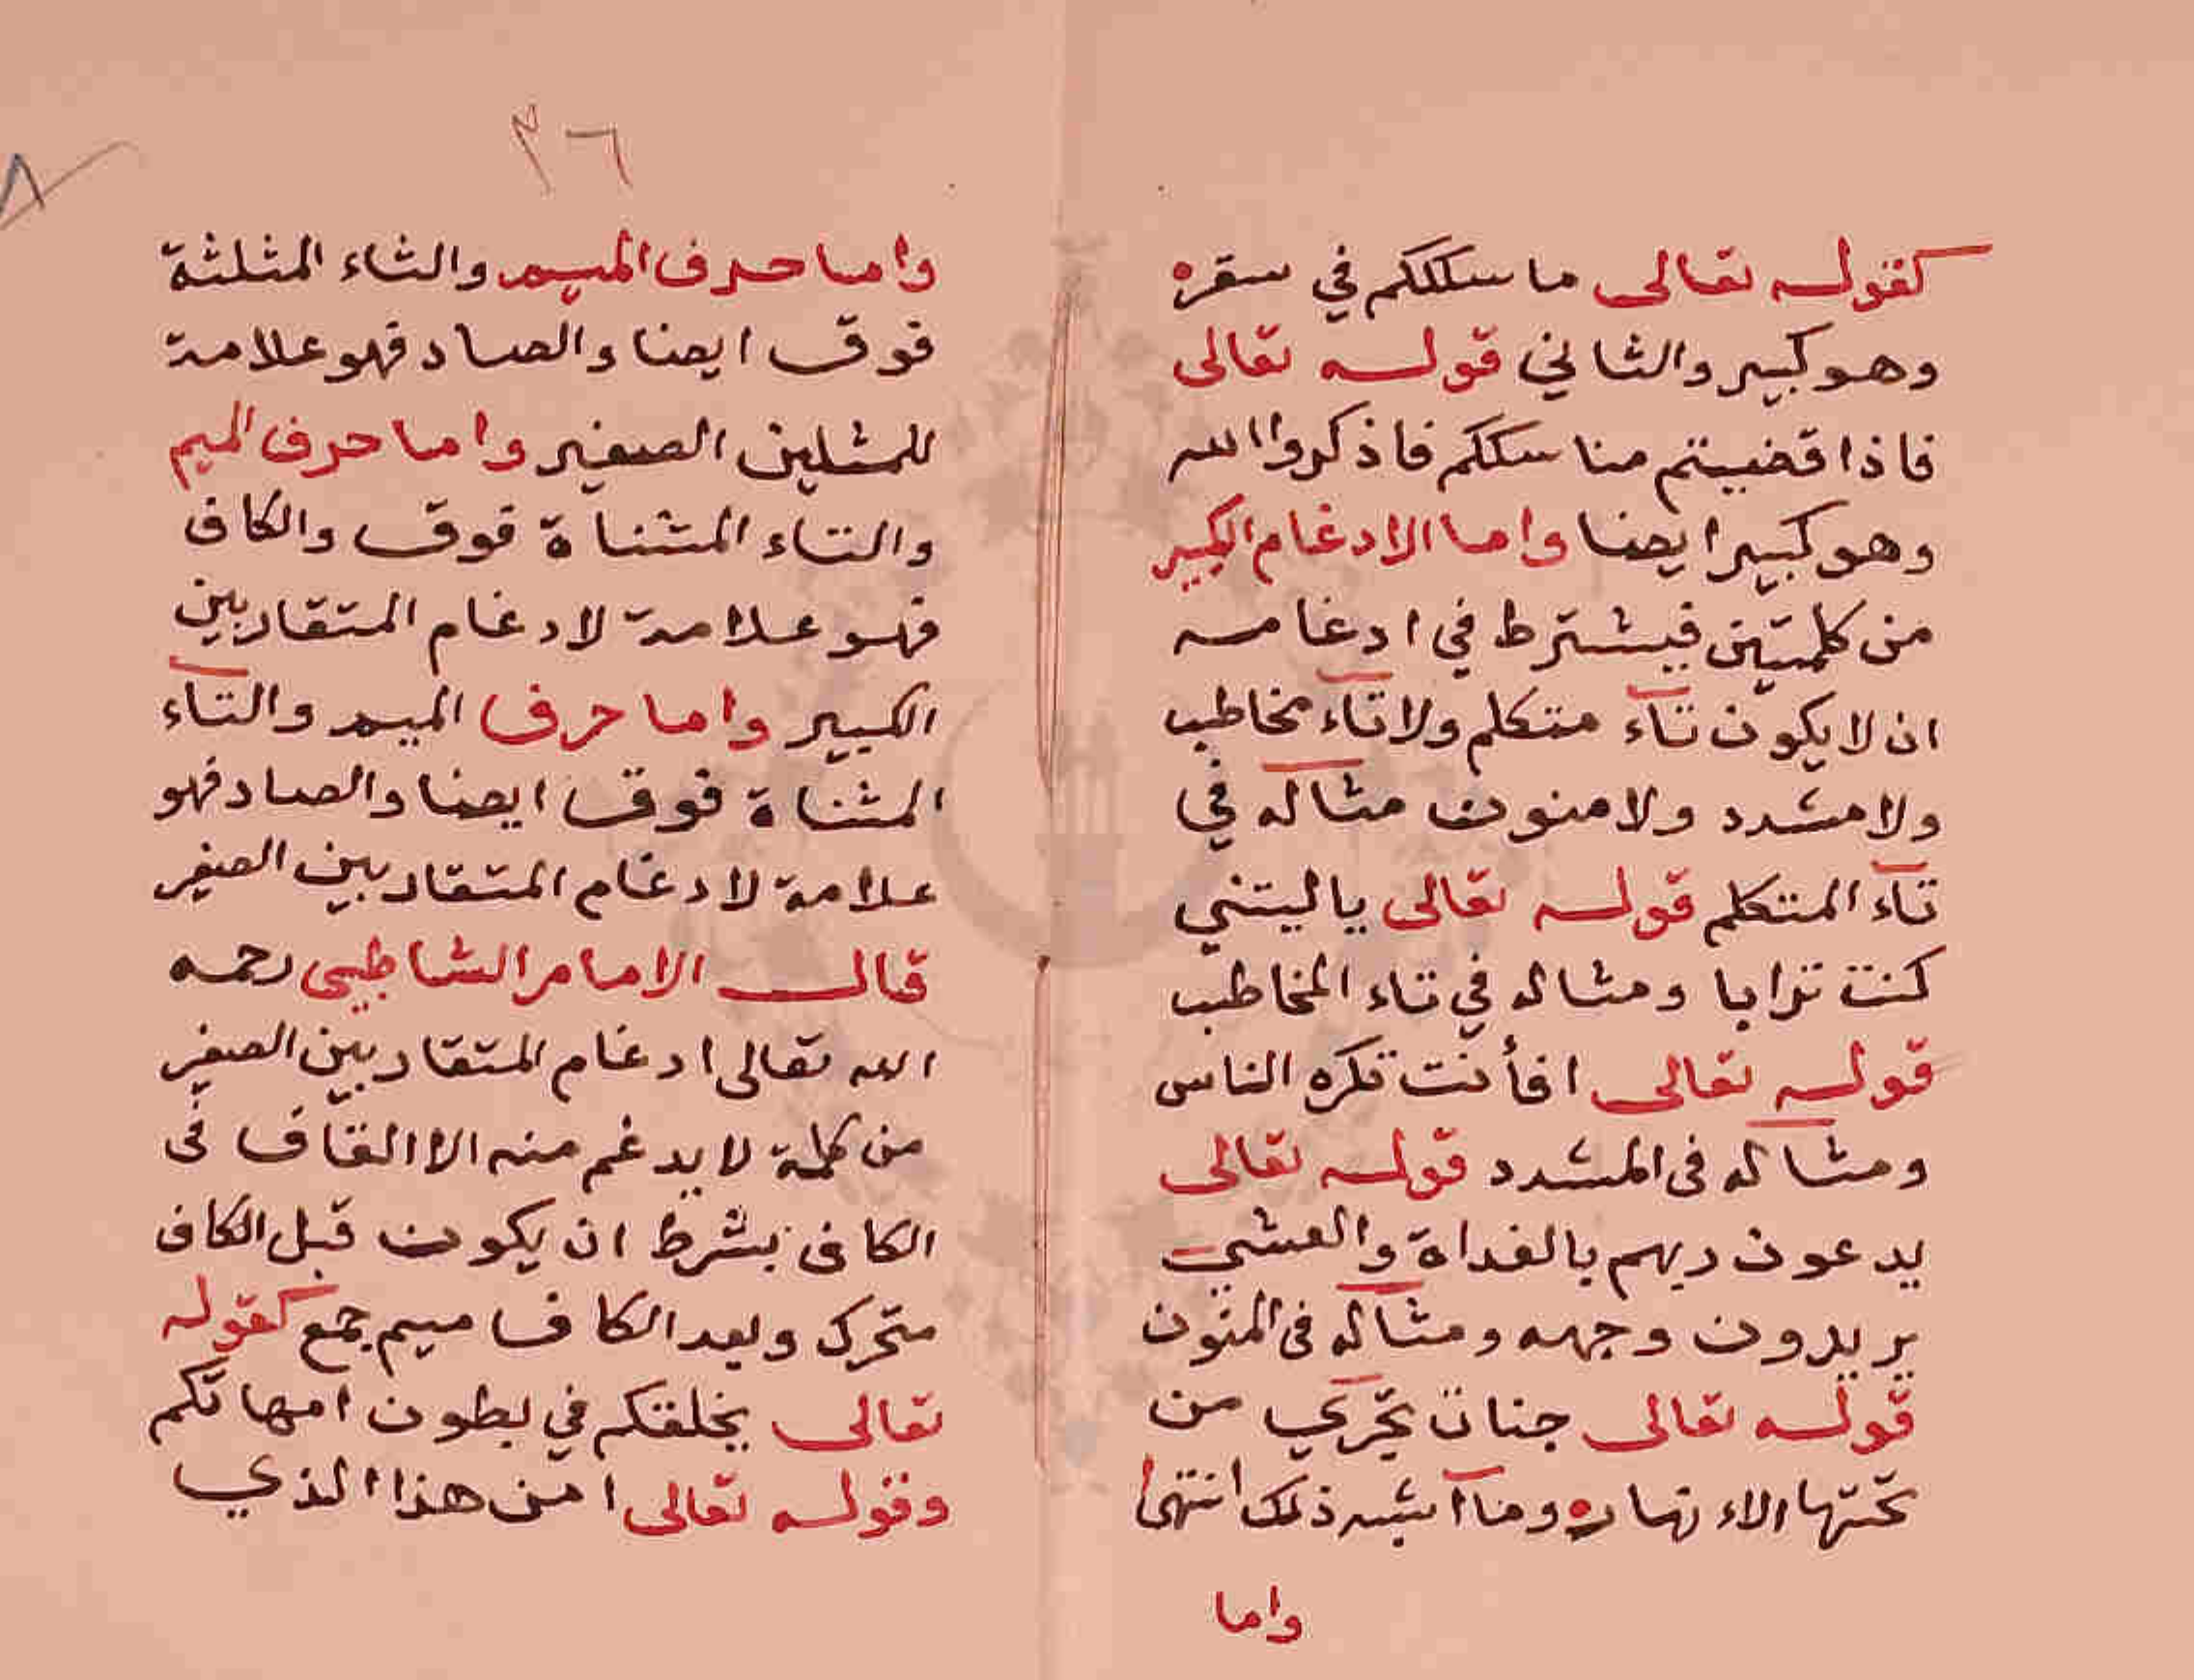 كقوله تعالى ما سلككم في سقره
وهو كبير والثاني قوله تعالى
فاذا قضيتم مناسككم فاذكروا الله
وهو كبير ايضا واما الادغام الكبير
من كلمتين فيشترط في ادغامه
ان لا يكون تآء متكلم ولا تآء مخاطب
ولا مشدد ولا منون مثاله في
تآء المتكلم قوله تعالى ياليتني
كنت ترابا ومثاله في تاء المخاطب
قوله تعالى افأنت تكره الناس
ومثاله فى المشدد قوله تعالى
يدعون ربهم بالغداة والعشي
يريدون وجهه ومثاله فى المنون
قوله تعالى جنات تجري من
تحتها الاءنهار ومآ اشبه ذلك انتهى
واما
٣٦
واما حرف الميم والثاء المثلثة
فوق ايضا والصاد فهو علامة
للمثلين الصغير واما حرف الميم
والتاء المثناة فوق والكاف
فهو علامة لادغام المتقاربين
الكبير واما حرف الميم والتاء
المثناة فوق ايضا والصاد فهو
علامة لادغام المتقاربين الصغير
قال الامام الشاطبي رحمه
الله تعالى ادغام المتقاربين الصغير
من كلمة لا يدغم منه الا القاف فى
الكاف بشرط ان يكون قبل الكاف
متحرك وبعد الكاف ميم جمع كقوله
تعالى يخلقكم في بطون امهاتكم
وقوله تعالى امن هذا الذي